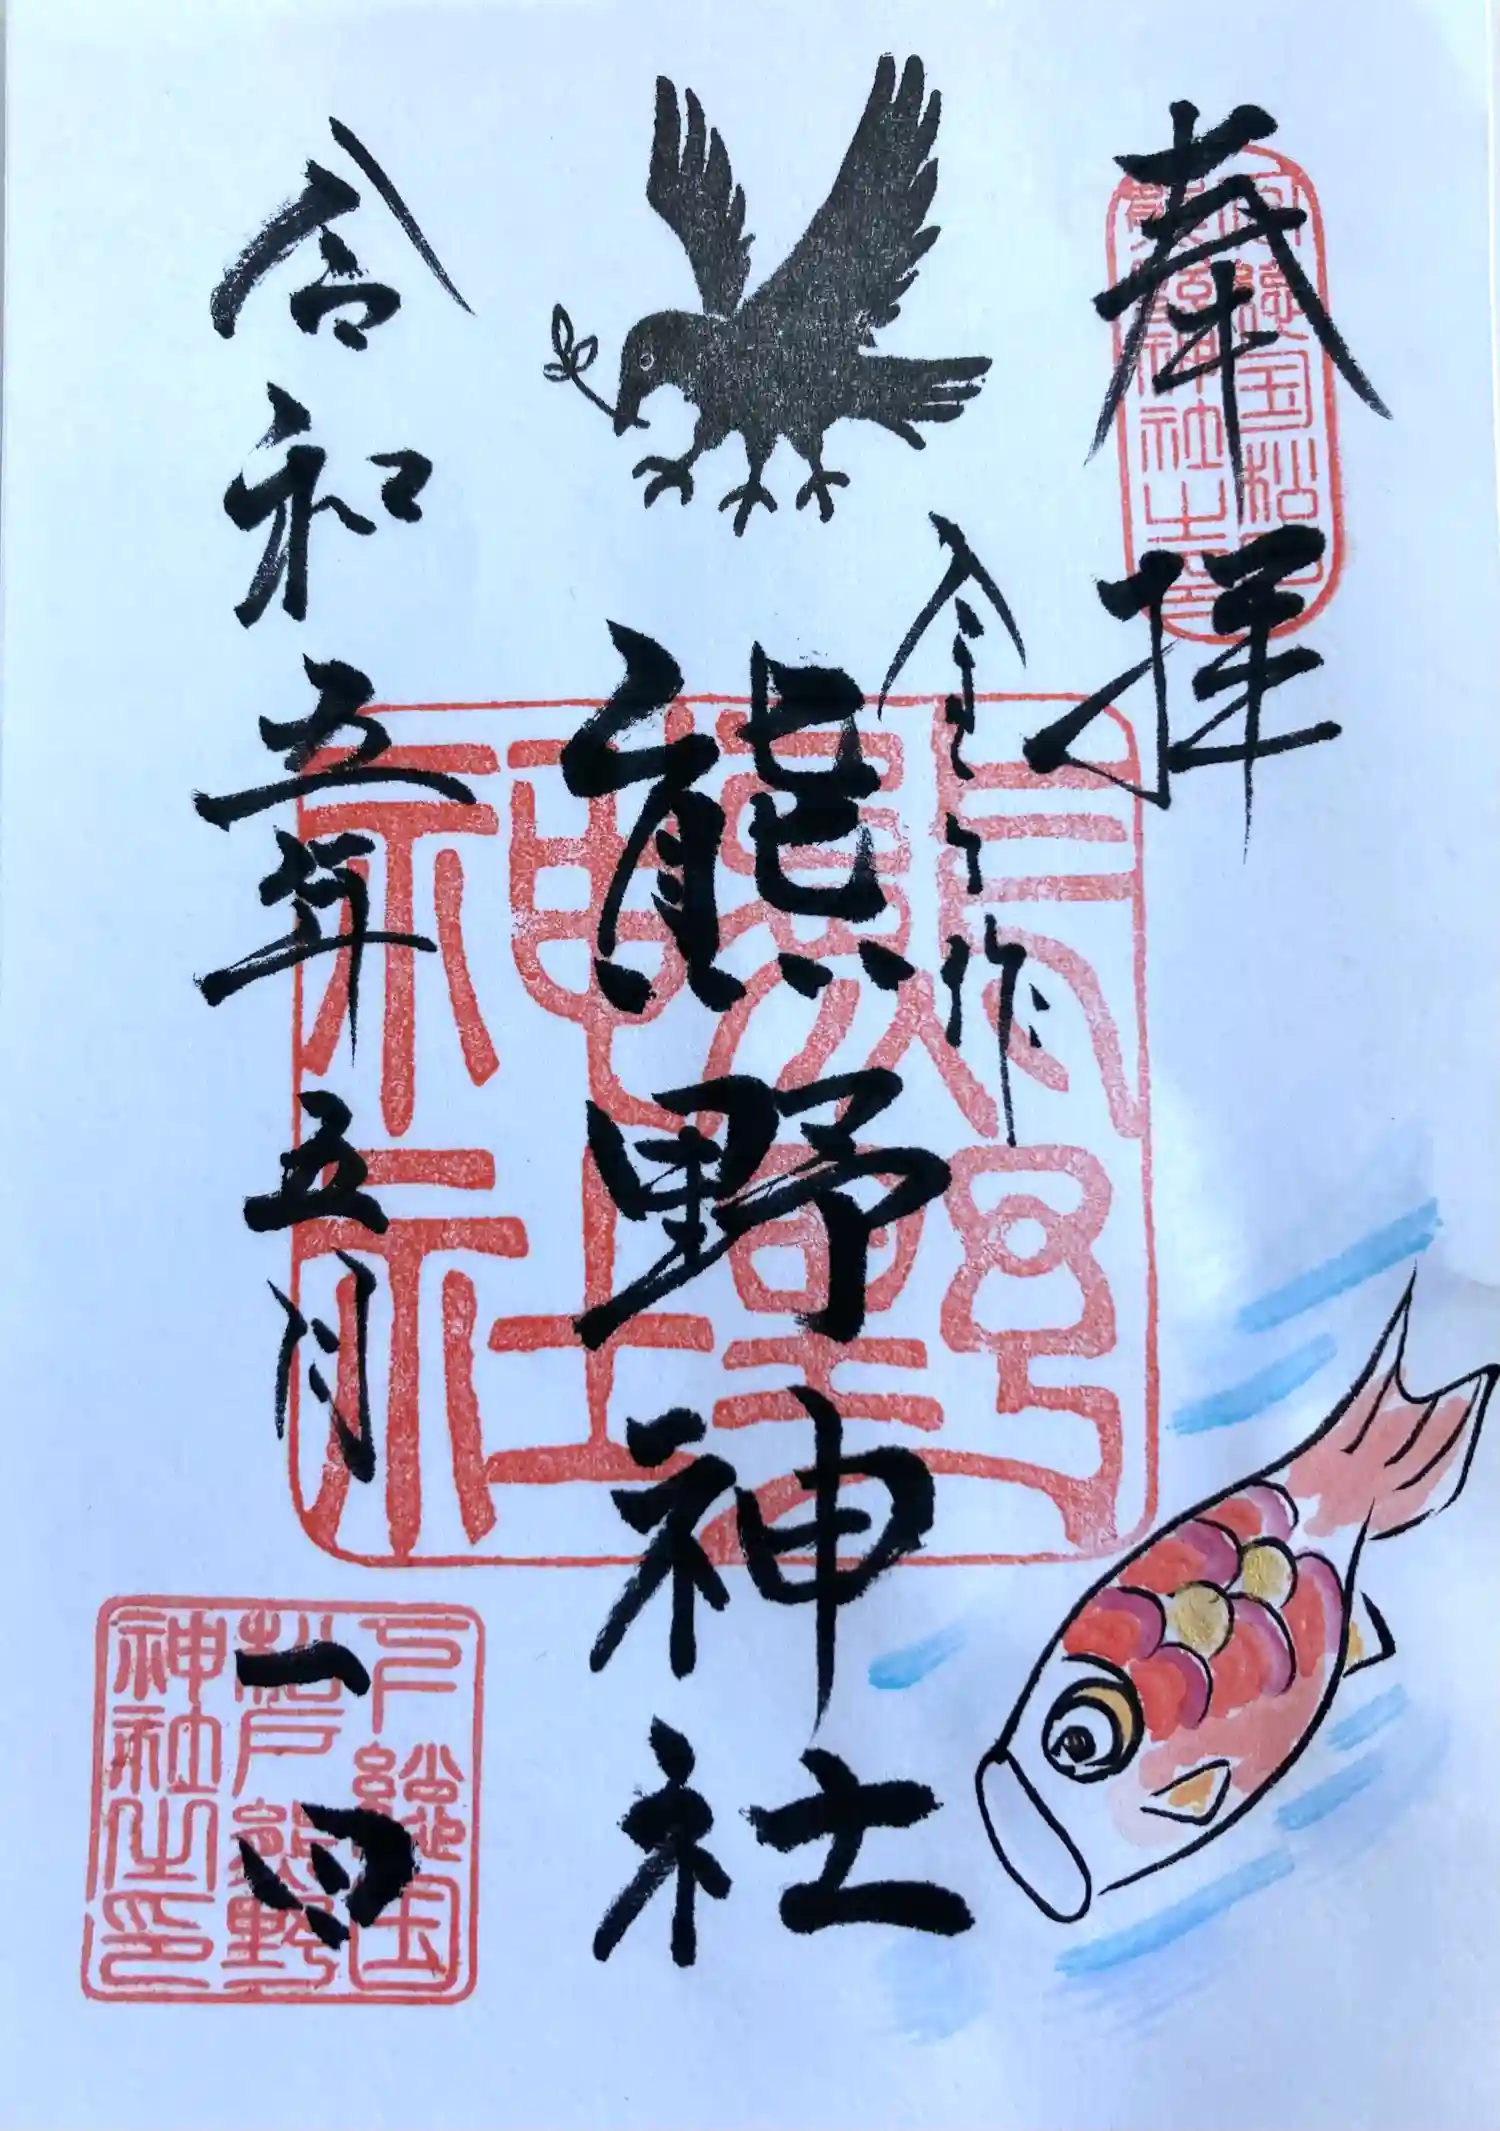 奉拝
下總国松戸
熊野神社之
金ヶ作
熊野神社
熊野
神社
令和五年五月一四
下總国
松戸熊野
神社之印